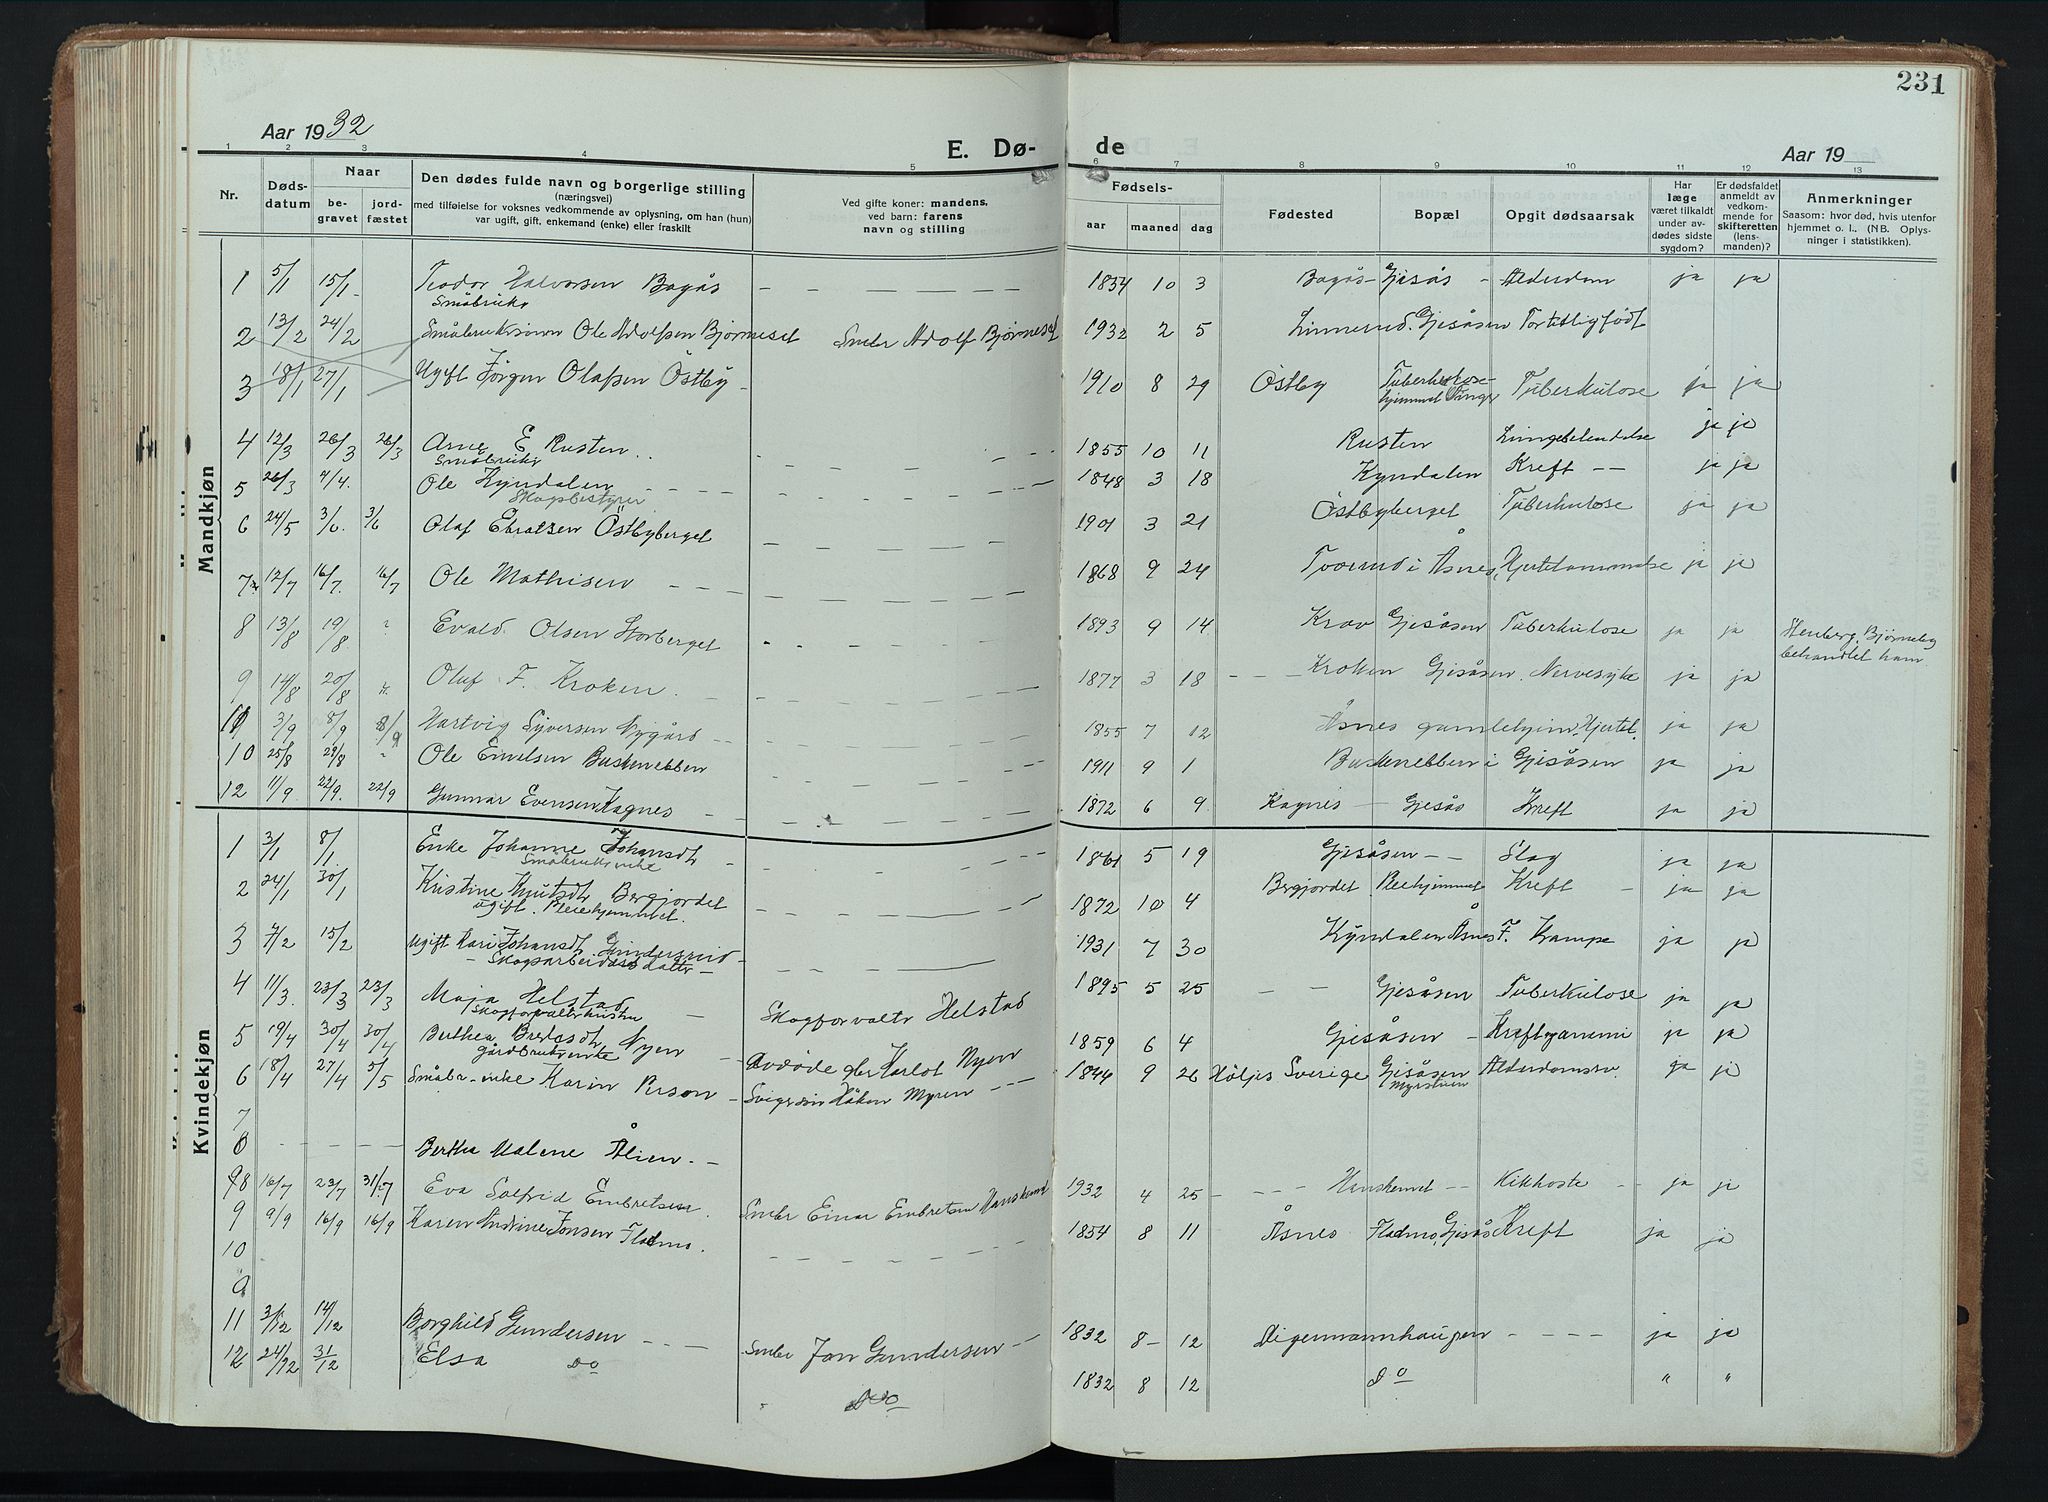 231
Aar 1932
E. Dø-
de
Aar 19
1 2 3 4 5 6 7 8 9 10 11 12 13
Nr.
Døds-
datum
Naar
be-
gravet
jord-
fæstet
Den dødes fulde navn og borgerlige stilling
(næringsvei)
med tilføielse for voksnes vedkommende av oplysning, om han (hun)
var ugift, gift, enkemand (enke) eller fraskilt
Ved gifte koner: mandens,
ved barn: farens
navn og stilling
Fødsels-
aar maaned dag
Fødested
Bopæl
Opgit dødsaarsak
Har
læge
været tilkaldt
under av-
dødes sidste
sygdom?
Er dødsfaldet
anmeldt av
vedkom-
mende for
skifteretten
(lens-
manden)?
Anmerkninger
Saasom: hvor død, hvis utenfor
hjemmet o. l.. (NB. Oplys-
ninger i statistikken).
Mandkjøn
1 5/1 15/1 Teodor Halvorsen Bogås 1854 10 3 Bogås Gjesås Alderdom ja ja
Småbruker
2 13/2 24/2 Småbrukersønn Ole Adolfsen Bjørneset Smbr Adolf Bjørneset 1932 2 5 Linnerud Gjesåsen For tidlig født
3 18/1 27/1 Ugift Jörgen Olafsen Östby 1910 8 29 Östby Tuberkulose-
hjemmet Tuberkulose ja ja
4 12/3 26/3 26/3 Arne E Rusten 1855 10 11 Rusten Lungebetendelse ja ja
Småbruker
5 26/3 4/4 Ole Kyndalen 1848 3 18 Kyndalen Kreft ja ja
Skogbestyrer
6 24/5 3/6 3/6 Olaf Östbyberget 1901 3 21 Östbyberget Tuberkulose ja ja
7 12/7 16/7 16/7 Ole Mathisen 1868 9 24 i Åsnes ja ja
8 13/8 19/8 Evald Olsen Storberget 1893 9 14 Krov Gjesåsen Tuberkulose ja ja Bjørneby
behandlet ham
9 14/8 20/8 Olaf F. Kroken 1877 3 18 Kroken Gjesåsen Nervesyke ja ja
11 3/9 8/9 8/9 Hartvig Syversen Nygård 1855 7 12 Åsnes gamlehjem Hjertef. ja ja
10 25/8 29/8 Ole Emilsen Buskenebben 1911 9 1 Buskenebben i Gjesåsen ja ja
12 11/9 22/9 22/9 Gunnar Evensen Kagnes 1872 6 9 Kagnes Gjesås Kreft ja ja
Kvindekjøn
1 3/1 8/1 Enke Johanne Johansdt 1861 5 19 Gjesåsen Slag ja ja
Småbrukerenke
2 24/1 30/1 Kristine Knutsdt Bergjordet 1872 10 4 Bergjordet Pleiehjemmet Kreft ja ja
ugift. Pleiehjemmet.
3 7/2 15/2 Ugift Kari Johansdt 1931 7 30 Kyndalen Åsnes F. Krampe ja ja
Skogsarbeidersdatter
4 11/3 23/3 23/3 Maja Helstad Skogforvalter Helstad 1895 5 25 Gjesåsen Tuberkulose ja ja
Skogforvalterhustru
5 19/4 30/4 30/4 Berthea Myren Avdøde gbr Karlot Myren 1859 6 4 Gjesåsen Kreft ja ja
Gårdbrukerenke
6 18/4 27/4 5/5 Småbr-enke Karin Persen Svigersøn Håken Myren 1844 9 26 Höljes Sverige Gjesåsen Alderdomssv. ja ja
7
8 Bertha Malene Ålien
8 16/7 23/7 31/7 Eva Solfrid Embretsen Smbr Einar Embretsen Hanskemet 1932 4 25 Hanskemet Kikhoste ja ja
9 9/9 16/9 16/9 Karen Andrine Jonsen Fladmo. 1854 8 11 Åsnes Fladmo, Gjesås Kreft ja ja
10
9
11 3/12 14/12 Borghild Gundersen Smbr Jan Gundersen 1832 8 12 Digermannhaugen ja ja
12 24/12 31/12 Elsa do do 1832 8 12 do " "